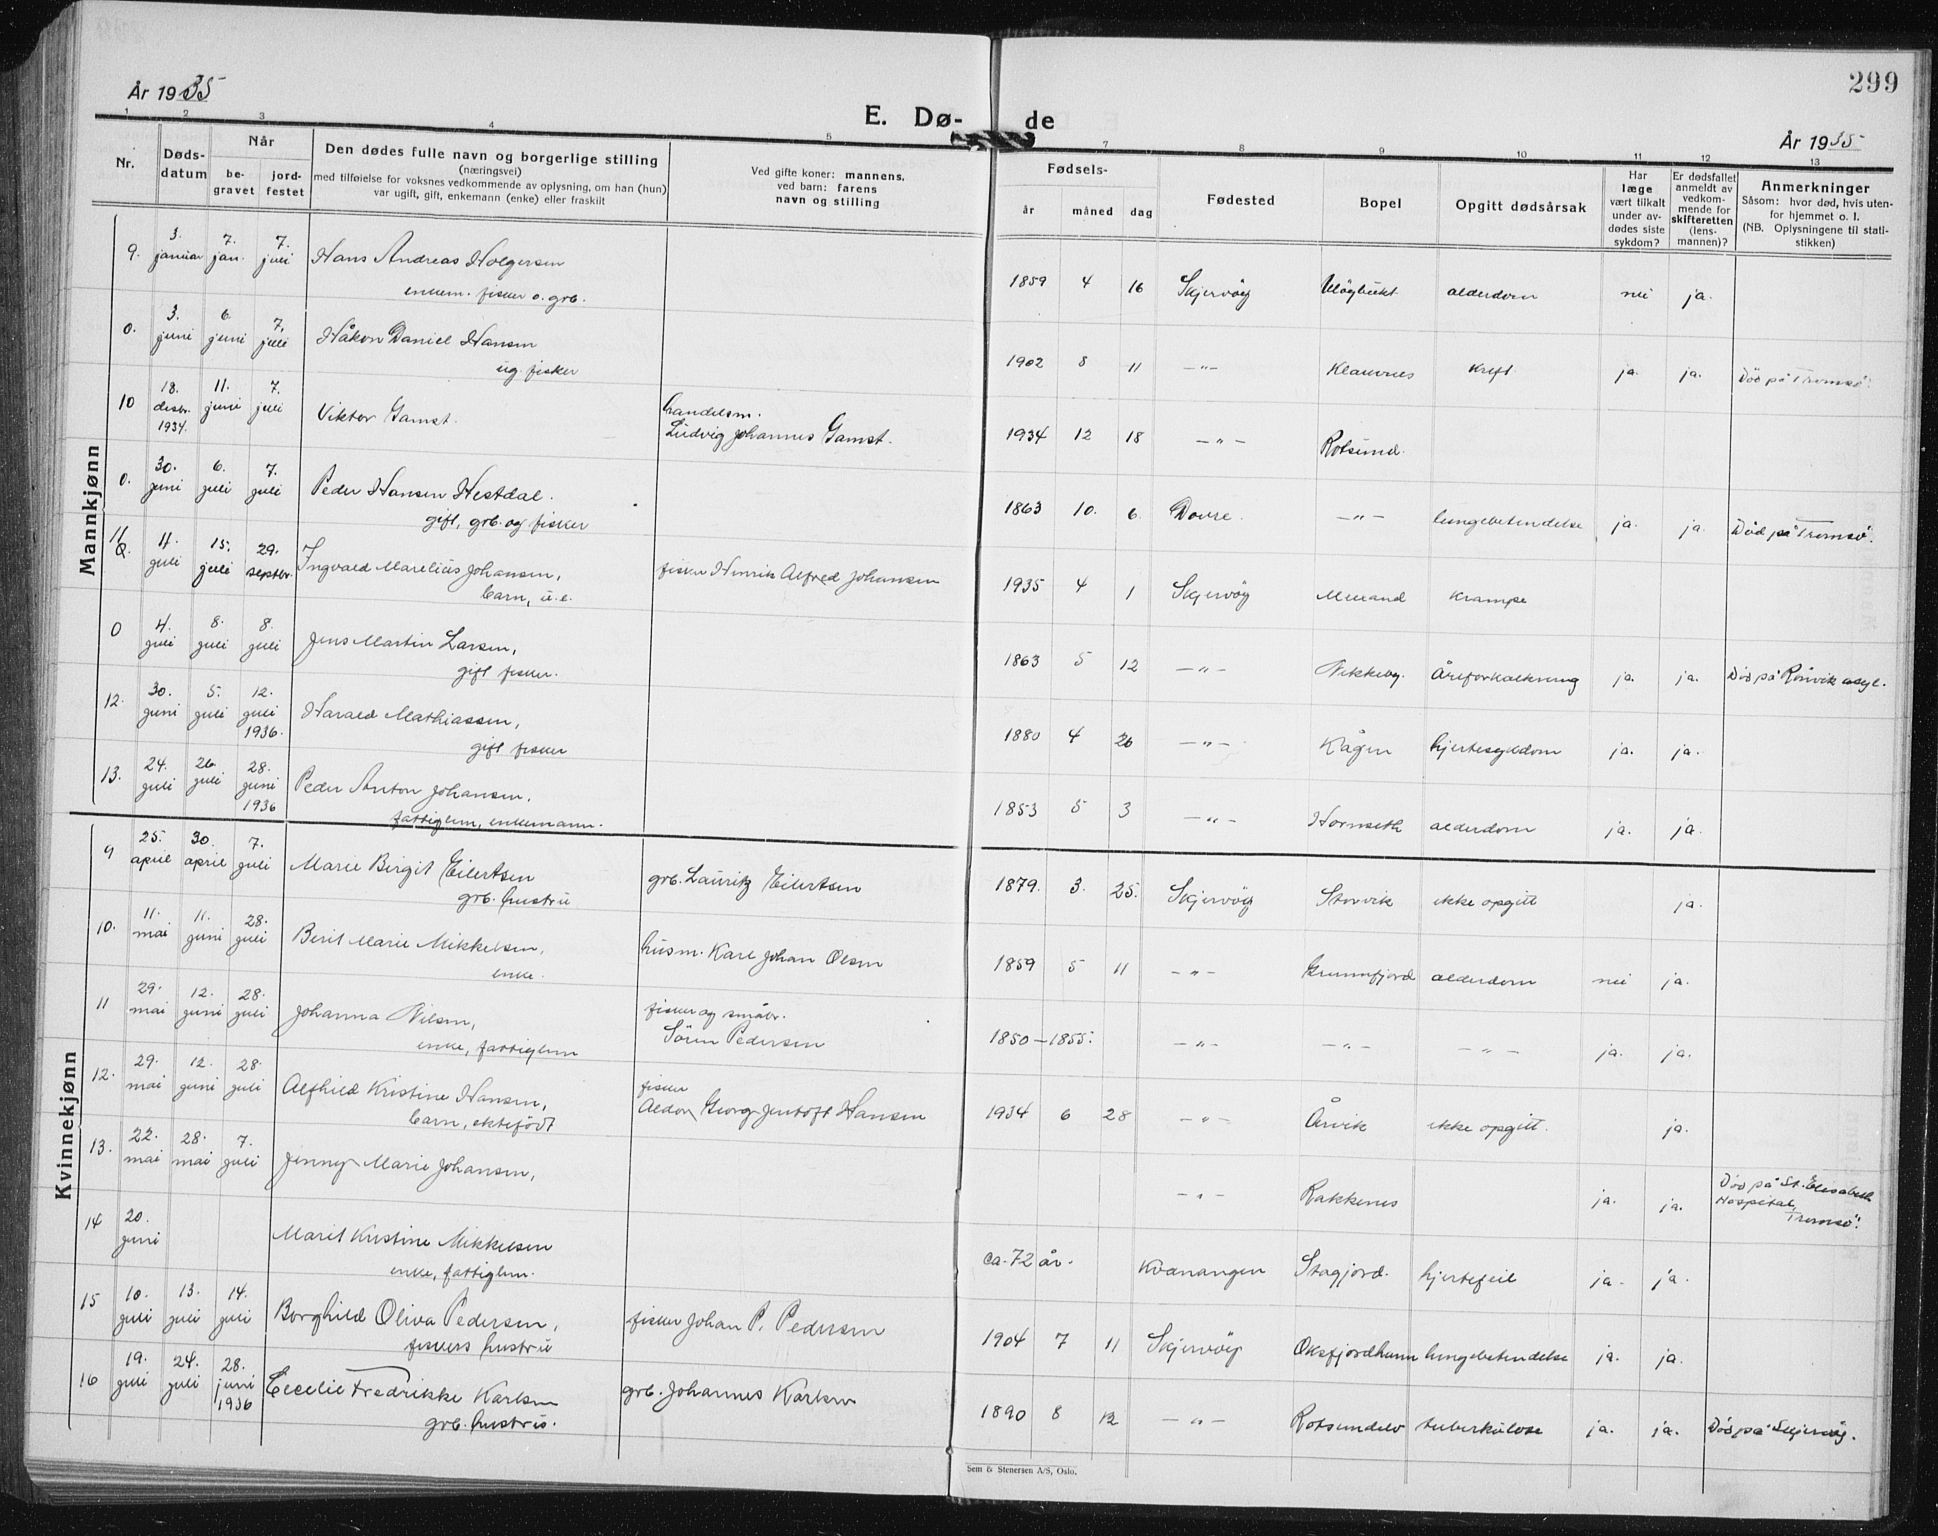 299
År 1935
E. Dø-
de
År 1935
1 2 3 4 5 7 8 9 10 11 12 13
Nr.
Døds-
datum
Når
be-
gravet
jord-
festet
Den dødes fulle navn og borgerlige stilling
(næringsvei)
med tilføielse for voksnes vedkommende av oplysning, om han (hun)
var ugift, gift, enkemann (enke) eller fraskilt
Ved gifte koner: mannens,
ved barn: farens
navn og stilling
Fødsels-
år måned dag
Fødested
Bopel
Opgitt dødsårsak
Har
læge
vært tilkalt
under av-
dødes siste
sykdom?
Er dødsfallet
anmeldt av
vedkom-
mende for
skifteretten
(lens-
mannen)?
Anmerkninger
Såsom: hvor død, hvis uten-
for hjemmet o. l.
(NB. Oplysningene til stati-
stikken)
Mannkjønn
9. 3. januar 7. jan. 7. juli Hans Andreas Holgersen
enkem. fisker o. grb.
1859 4 16 Skjervöy Ulöybukt alderdom nei ja.
0. 3. juni 6. juni 7. juli Håkon Daniel Hansen
ug. fisker
1902 8 11 -"- Klauvnes kreft ja. ja. Död på Tromsö.
10 18. desbr. 1934. 11. juni 7. juli Viktor Gamst. handelsm.
Ludvig Johannes Gamst.
1934 12 18 -"- Rotsund.
0. 30. juni 6. juli 7. juli Peder Hansen Hestdal.
gift, grb. og fisker
1863 10. 6. Dovre. -"- lungebetendelse ja. ja. Död på Tromsö.
11 4. juli 15. juli 29. septbr. Ingvald Marelius Johansen, fisker Henrik Alfred Johansen
barn, u.e.
1935 4 1 Skjervöy Meiland krampe
0 4. juli 8. juli 8. juli Jens Martin Larsen,
gift fisker.
1863 5 12 -"- Nikkeby. Åreforkalkning ja. ja. Död på Rönvik asyl.
12. 30. juni 5. juli 12. juli 1936. Harald Mathiassen,
gift fisker
1880 4 26 -"- Kågen hjertesykdom ja. ja.
13. 24. juli 26. juli 28. juni 1936 Peder Anton Johansen,
fattiglem, enkemann.
1853 5 3 -"- Hornseth alderdom ja. ja.
Kvinnekjønn
9 25. april 30. april 7. juli Marie Birgit Eilertsen grb. Lauritz Eilertsen
grb. hustru
1879. 3. 25. Skjervöy Storvik ikke opgitt ja.
10. 11. mai 11. juni 28. juli Berit Marie Mikkelsen, husm. Karl Johan Olsen
enke.
1859 5 11 -"- Grunnfjord alderdom nei ja.
11 29. mai 12. juni 28. juli Johanna Nilsen, fisker og småbr.
enke, fattiglem Sören Pedersen
1850-1855. -"- -"- -"- ja. ja.
12. 29. mai 12. juni 28. juli Alfhild Kristine Hansen, fisker
barn, ektefödt Aldor Georg Jentoft Hansen
1934 6 28 -"- Årvik ikke opgitt. ja.
13. 22. mai 28. mai 7. juli Jenny Marie Johansen,
-"- Rakkenes ja. ja. Död på St. Elisabeth
Hospital,
Tromsö.
14 20. juni Marit Kristine Mikkelsen
enke, fattiglem.
ca. 72 år. Kvænangen Stagjord. hjertefeil ja. ja.
15 10. juli 13. juli 14. juli Borghild Oliva Pedersen, fisker Johan P. Pedersen
fiskers hustru
1904 7 11 Skjervöy Oksfjordhamn lungebetendelse ja. ja.
16 19. juli 24. juli 28. juni 1936 Cecelie Fredrikke Karlsen grb. Johannes Karlsen
grb. hustru.
1890 8 12 -"- Rotsundelv tuberkulose ja. ja. Död på Skjervöy.
Sem & Stenersen A/S, Oslo.